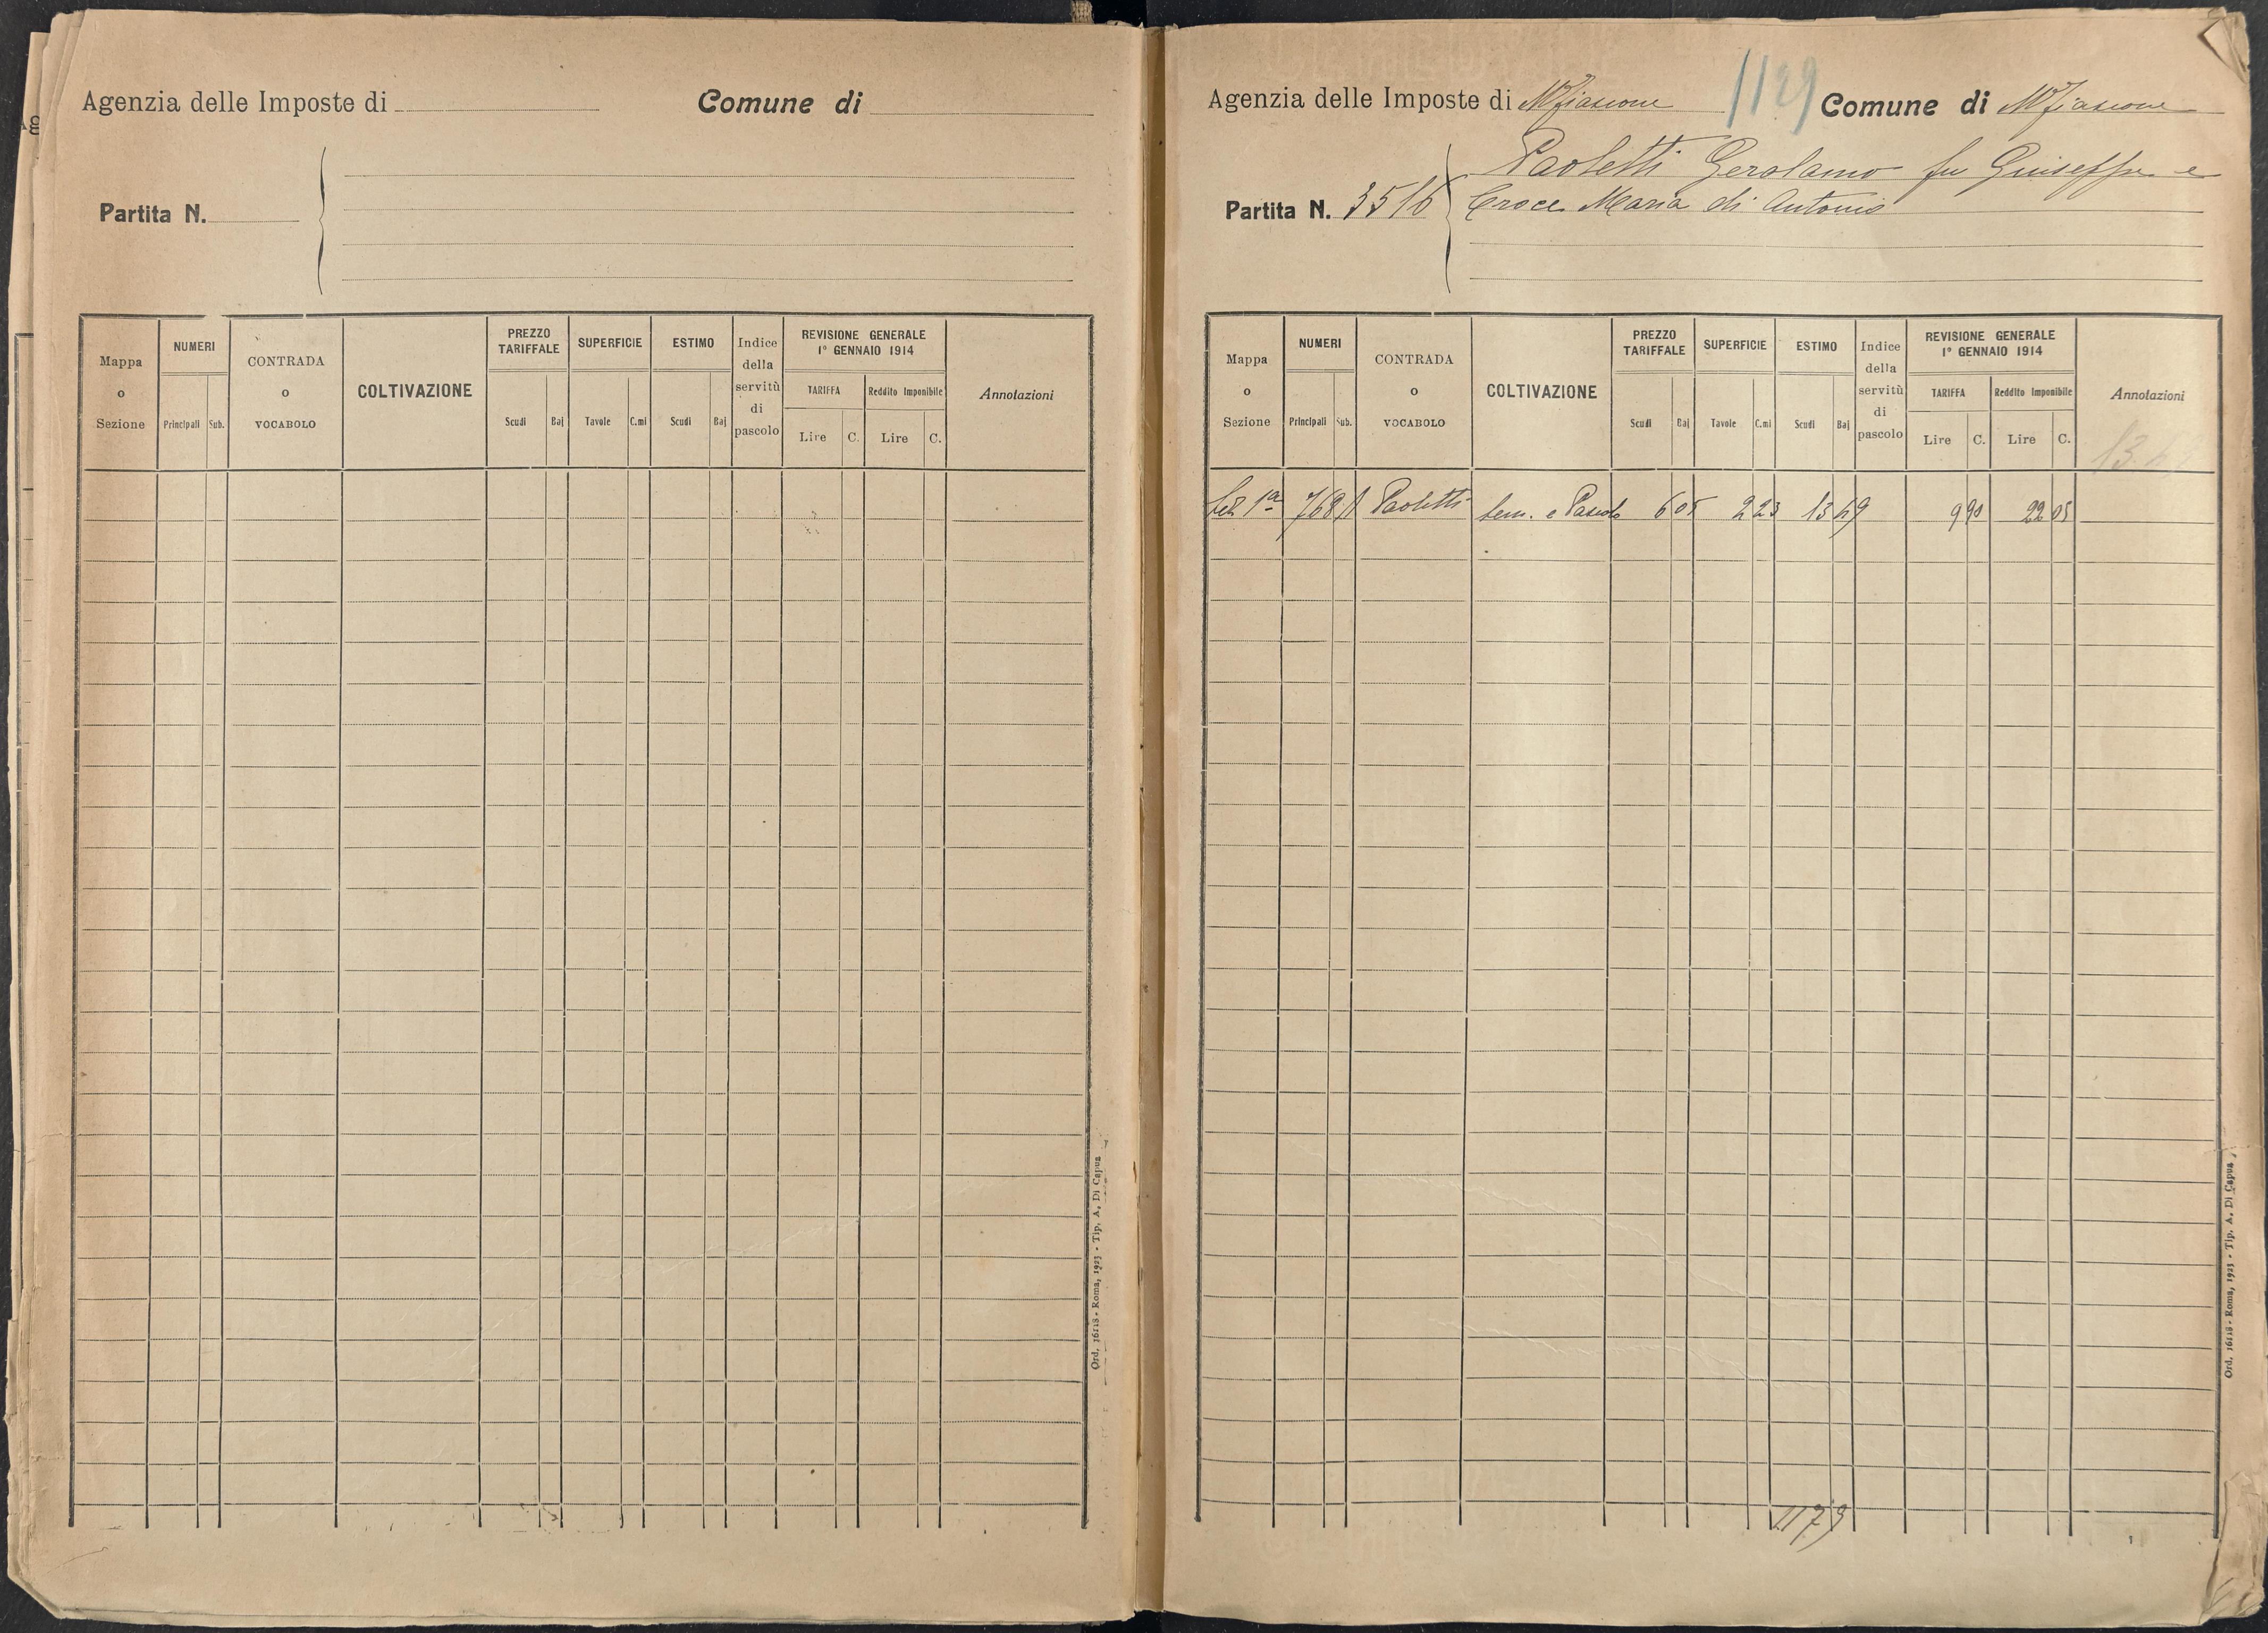 Agenzia delle Imposte di
Comune di
Partita N.
Mappa o Sezione
NUMERI
Principali Sub.
CONTRADA o VOCABOLO
COLTIVAZIONE
PREZZO TARIFFALE
Scudi Baj
SUPERFICIE
Tavole C.mi
ESTIMO
Scudi Baj
Indice della servitù di pascolo
REVISIONE GENERALE
1° GENNAIO 1914
TARIFFA
Lire C.
Reddito Imponibile
Lire C.
Annotazioni
Ord. 16118 - Roma, 1923 - Tip. A. Di Capua
Agenzia delle Imposte di Mfiascone
1129
Comune di Mfiascone
Partita N. 3516
Paoletti Gerolamo fu Giuseppe e
Croce Maria di Antonio
Mappa o Sezione
NUMERI
Principali Sub.
CONTRADA o VOCABOLO
COLTIVAZIONE
PREZZO TARIFFALE
Scudi Baj
SUPERFICIE
Tavole C.mi
ESTIMO
Scudi Baj
Indice della servitù di pascolo
REVISIONE GENERALE
1° GENNAIO 1914
TARIFFA
Lire C.
Reddito Imponibile
Lire C.
Annotazioni
Sez 1a 768 1 Paoletti Sem. e Pascolo 6 05 2 23 13 49 9 90 22 05
1179
Ord. 16118 - Roma, 1923 - Tip. A. Di Capua